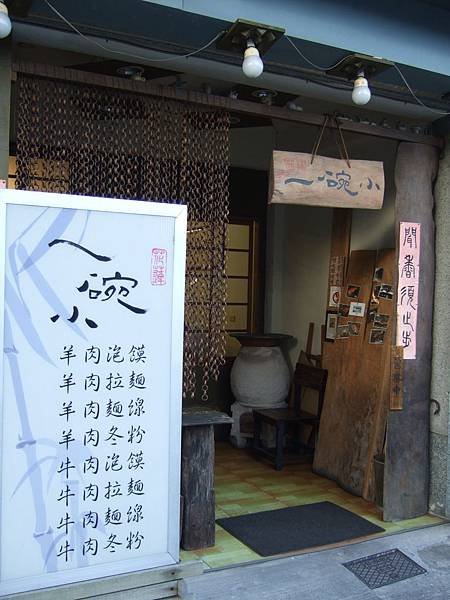 一碗小
羊肉泡饃
羊肉拉麵
羊肉麵線
羊肉冬粉
牛肉泡饃
牛肉拉麵
牛肉麵線
牛肉冬粉
小碗一
聞香須止步